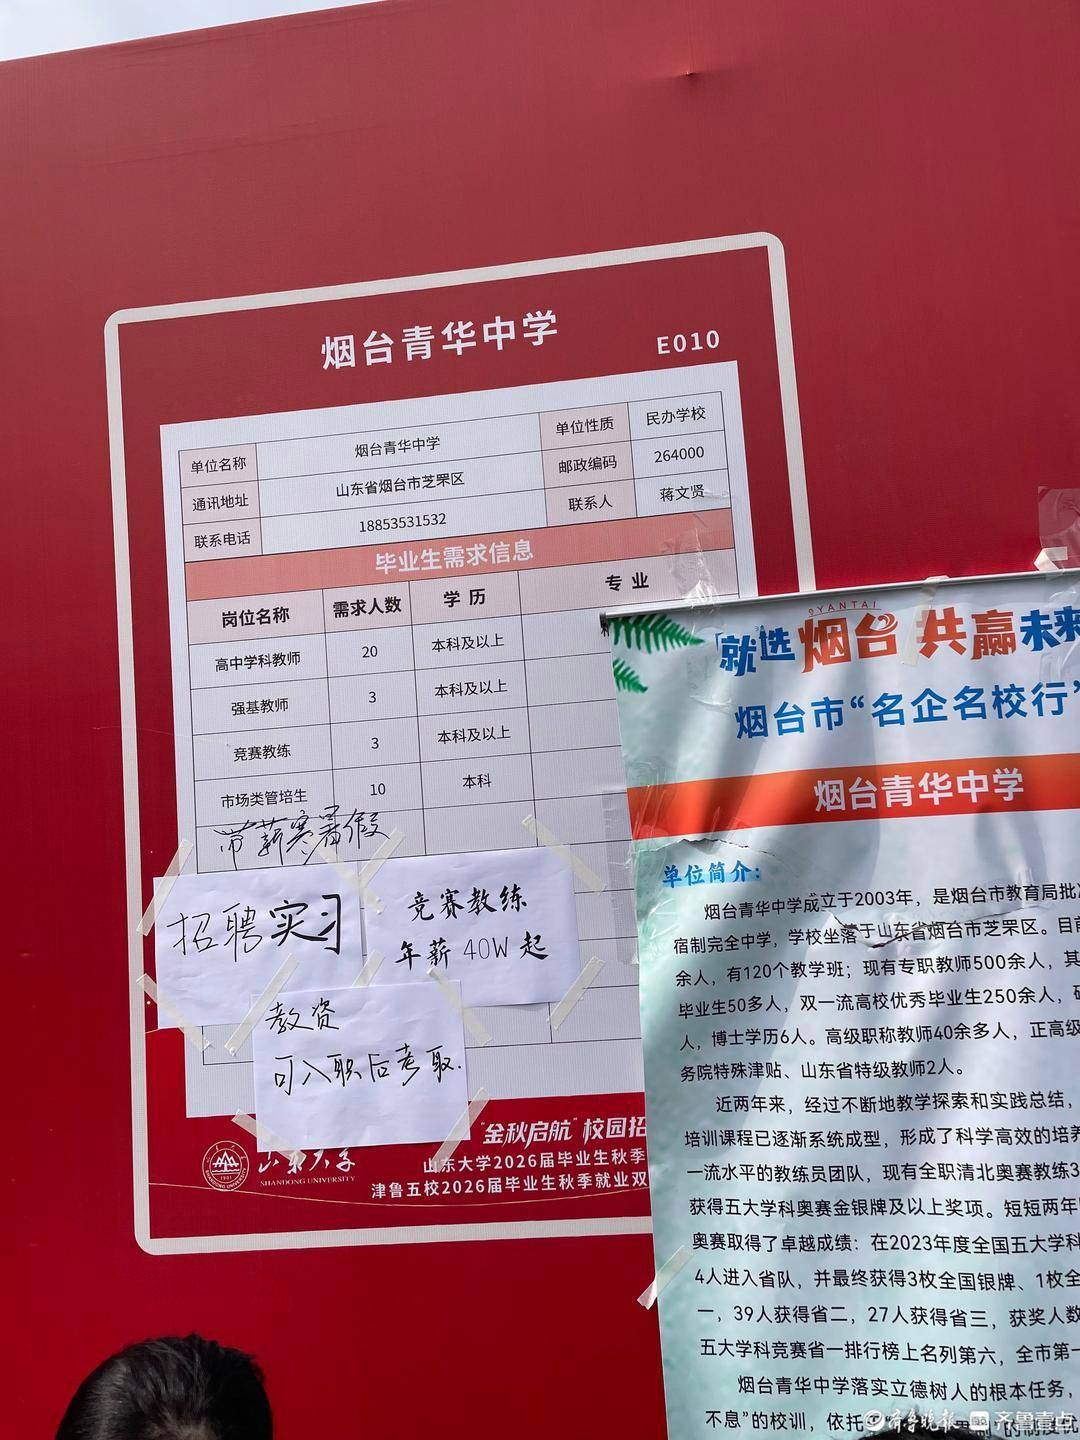 烟台青华中学
E010
单位名称 烟台青华中学 单位性质 民办学校
通讯地址 山东省烟台市芝罘区 邮政编码 264000
联系电话 18853531532 联系人 蒋文贤
毕业生需求信息
岗位名称 需求人数 学历 专业
高中学科教师 20 本科及以上
强基教师 3 本科及以上
竞赛教练 3 本科及以上
市场类管培生 10 本科
带薪寒暑假
招聘实习
竞赛教练
年薪40W起
教资
可入职后考取.
"金秋启航"校园招
山东大学
SHANDONG UNIVERSITY
1901
山东大学2026届毕业生秋季
津鲁五校2026届毕业生秋季就业双
YANTAI
「就选烟台 共赢未来
烟台市“名企名校行”
烟台青华中学
单位简介：
烟台青华中学成立于2003年，是烟台市教育局批
宿制完全中学，学校坐落于山东省烟台市芝罘区。目前
余人，有120个教学班；现有专职教师500余人，其
毕业生50多人，双一流高校优秀毕业生250余人，
人，博士学历6人。高级职称教师40余多人，正高级
务院特殊津贴、山东省特级教师2人。
近两年来，经过不断地教学探索和实践总结，
培训课程已逐渐系统成型，形成了科学高效的培养
一流水平的教练员团队，现有全职清北奥赛教练3
获得五大学科奥赛金银牌及以上奖项。短短两年
奥赛取得了卓越成绩：在2023年度全国五大学科
4人进入省队，并最终获得3枚全国银牌、1枚全
一，39人获得省二，27人获得省三，获奖人数
五大学科竞赛省一排行榜上名列第六，全市第一
烟台青华中学落实立德树人的根本任务，
不息”的校训，依托
的制度优
齐鲁晚报 齐鲁壹点